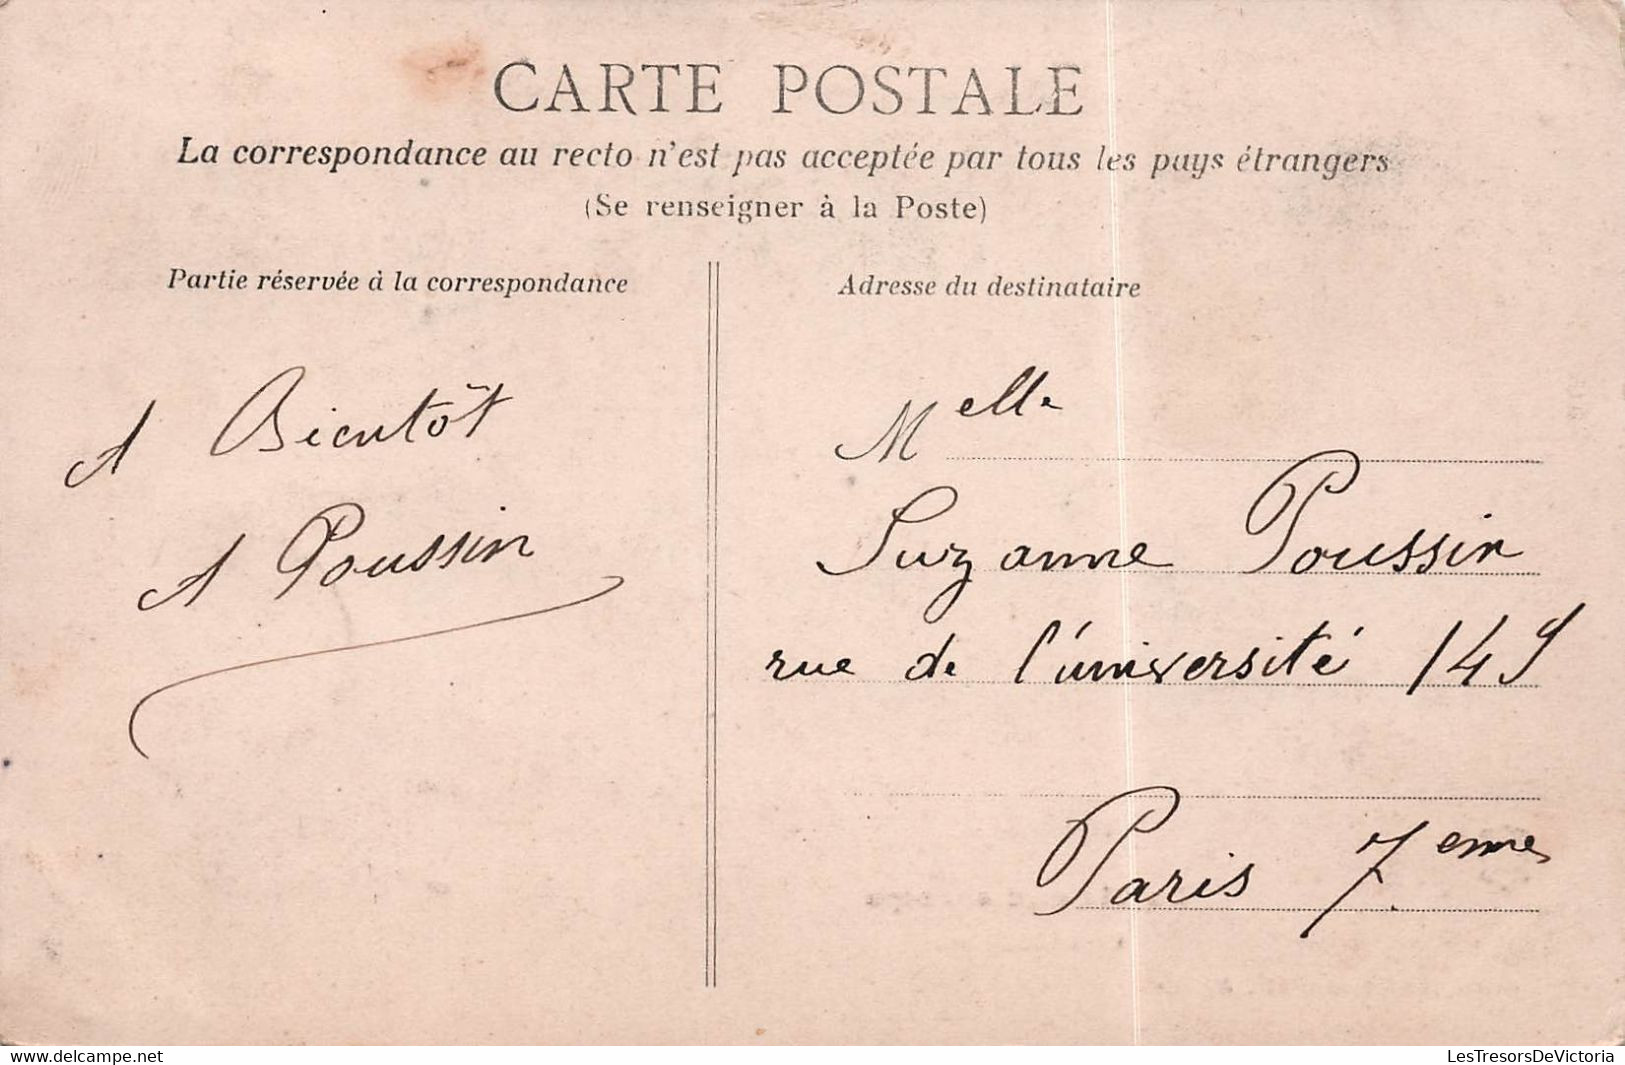 CARTE POSTALE
La correspondance au recto n'est pas acceptée par tous les pays étrangers
(Se renseigner à la Poste)
Partie réservée à la correspondance
A Bientôt
A Poussin
Adresse du destinataire
Melle
Suzanne Poussin
rue de l'université 149
Paris 7eme
delcampe.net
LesTresorsDeVictoria